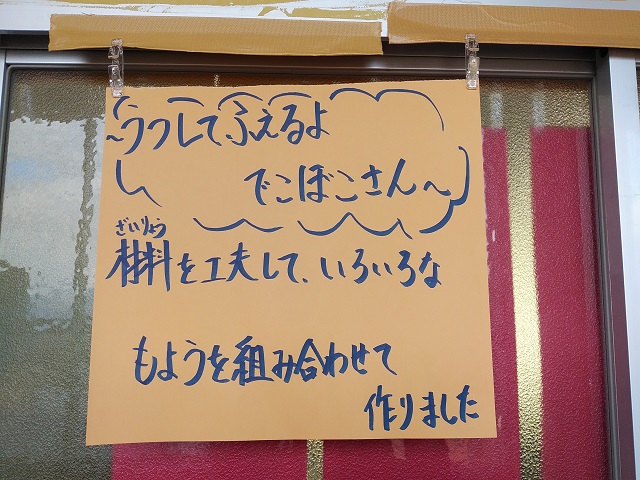 ~うつしてふえるよ
でこぼこさん~
ざいりょう
材料を工夫して、いろいろな
もようを組み合わせて
作りました